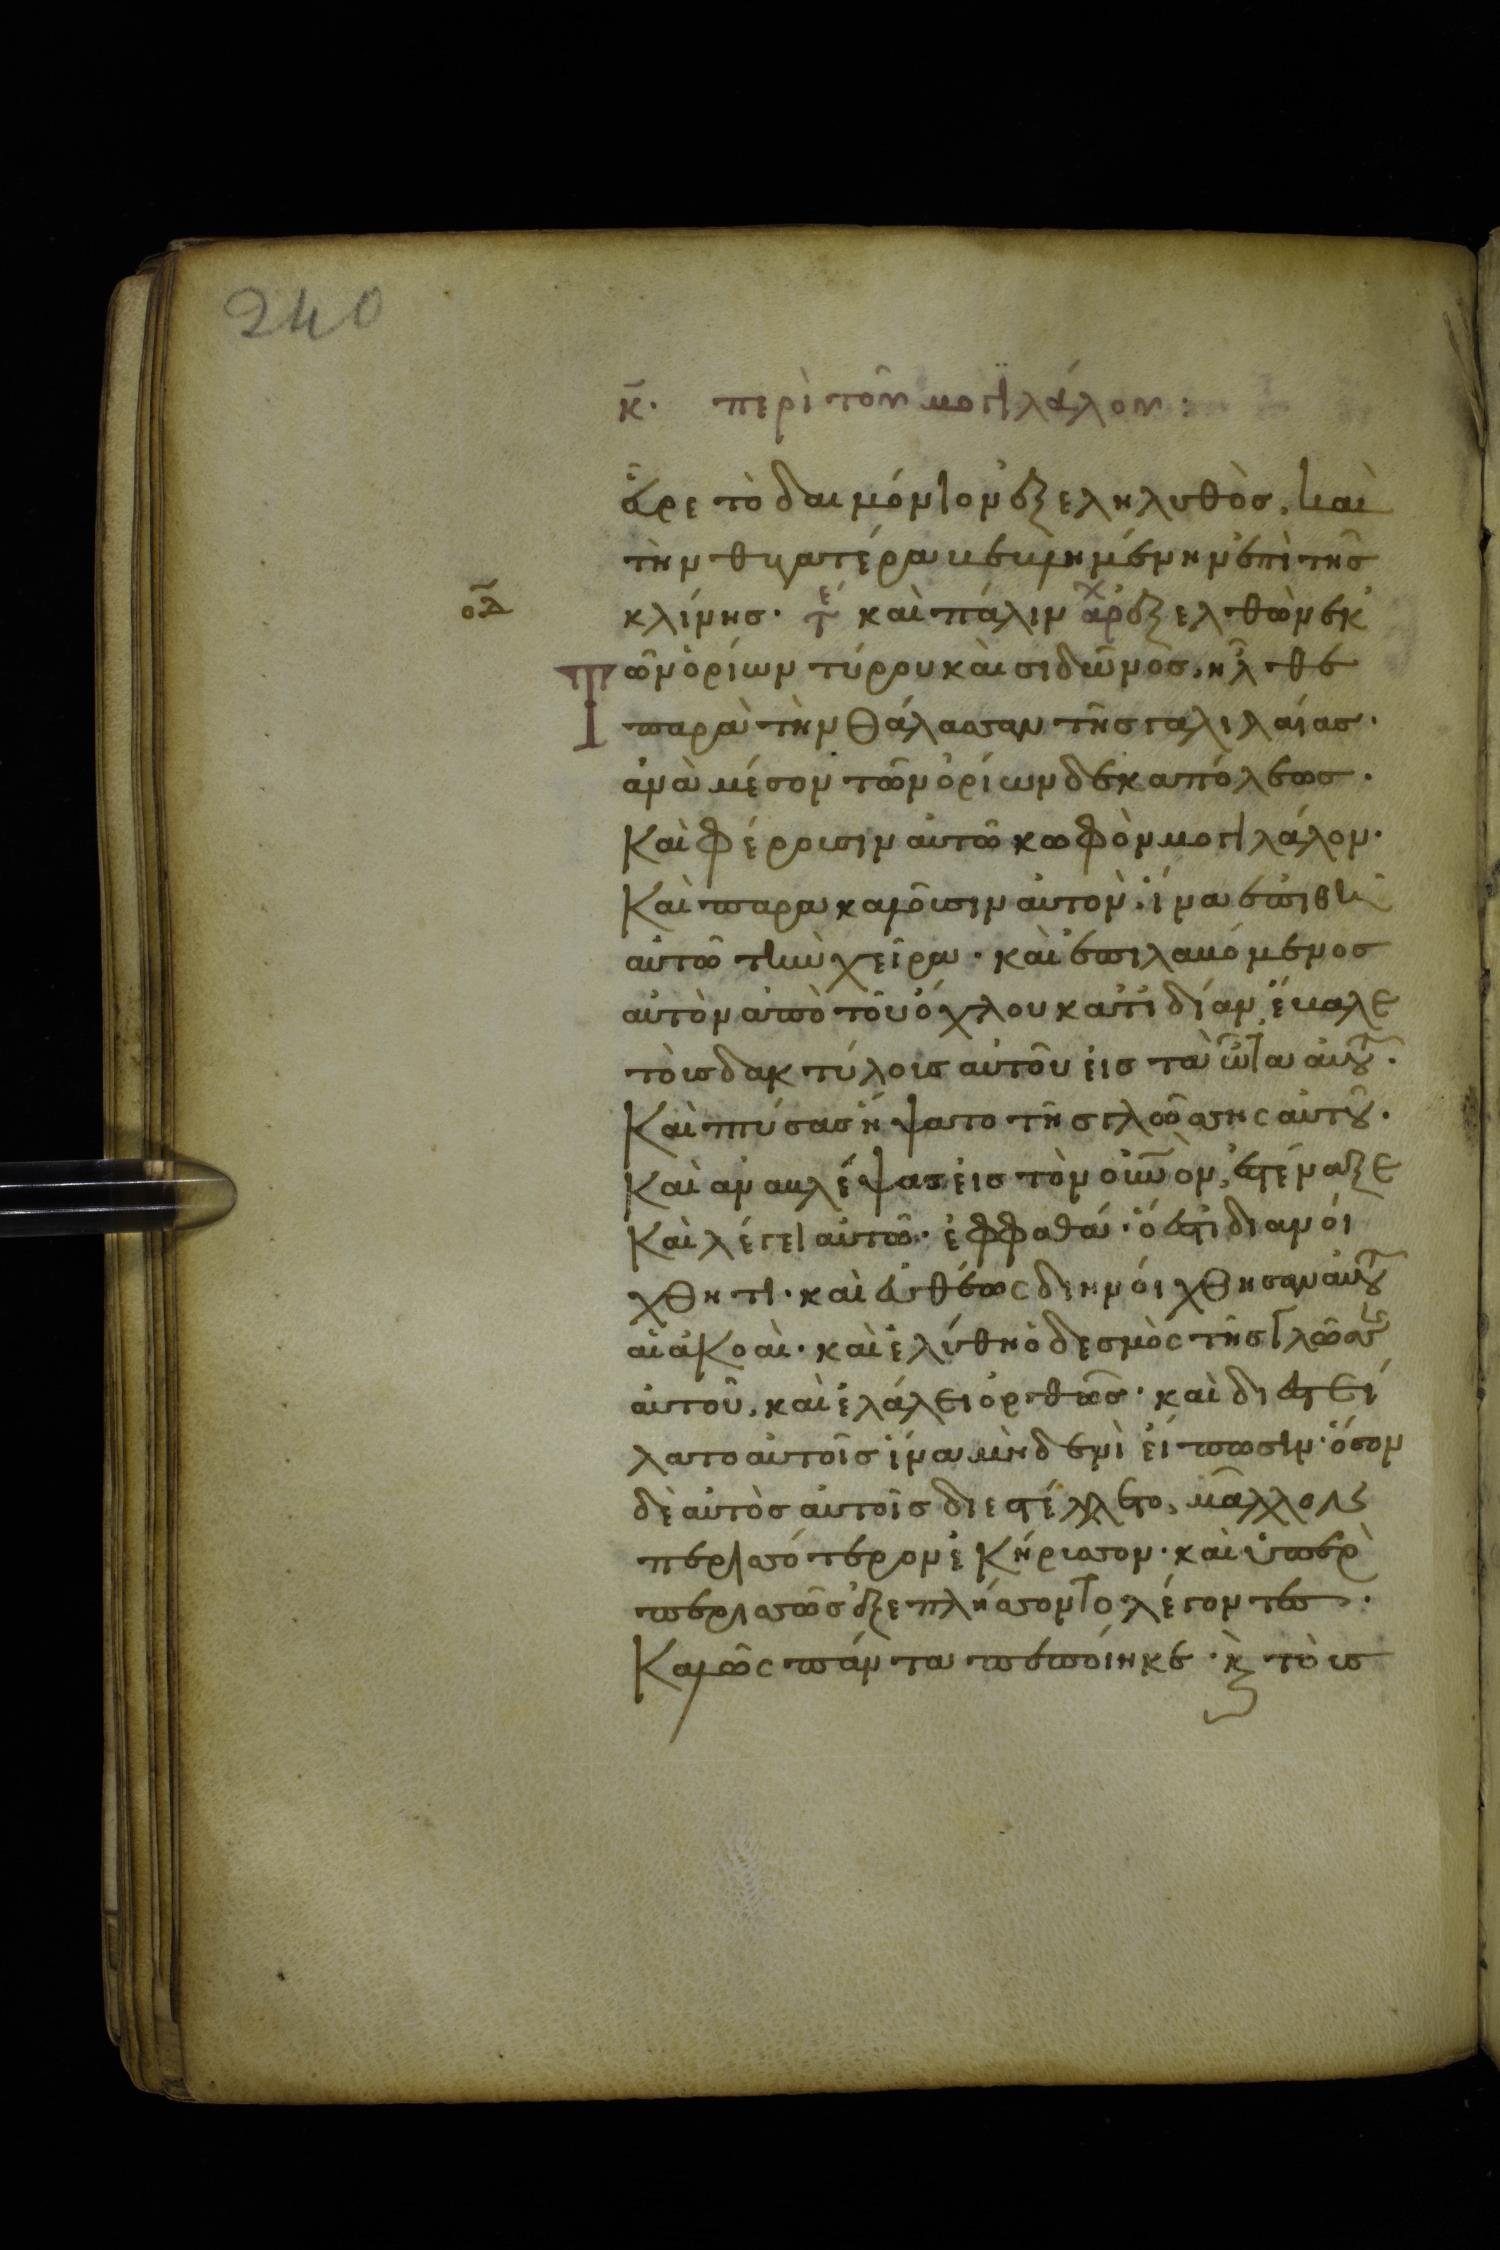 240
κ̅. περὶ τοῦ μογϊλάλου:
ὗρε τὸ δαιμόνιον ἐξεληλυθὸσ, καὶ
τὴν θυγατέρα βεβλημένην ἐπὶ τῆσ
οδ̅ κλίνησ. τε καὶ πάλιν αρχ ἐξελθὼν ἐκ
Τῶν ὁρίων τύρου καὶ σιδῶνοσ, ἦλθε
παρὰ τὴν θάλασσαν τῆσ γαλιλαίασ.
ἀνὰ μέσον τῶν ὁρίων δεκαπόλεωσ.
Καὶ φέρουσιν αὐτῶ κωφὸν μογιλάλον.
Καὶ παρακαλοῦσιν αὐτὸν, ἵνα ἐπιθῆ
αὐτῶ τὴν χεῖρα. καὶ ἐπιλαβόμενοσ
αὐτὸν ἀπὸ τοῦ ὄχλου κατ ἰδίαν, ἔβαλε
τοὺσ δακτύλουσ αὐτοῦ εἰσ τὰ ὦτα αὐτοῦ.
Καὶ πτύσασ ἥψατο τῆσ γλώσσησ αὐτοῦ.
Καὶ ἀναβλέψασ εἰσ τὸν οὐνον, ἐστέναξε
Καὶ λέγει αὐτῶ. ἐφφαθά. ὅ ἐστι διανοί
χθητι. καὶ εὐθέωσ διηνοίχθησαν αὐτοῦ
αἱ ἀκοαὶ. καὶ ἐλύθη ὁ δεσμὸσ τῆσ γλώσσησ
αὐτοῦ, καὶ ἐλάλει ὀρθῶσ. καὶ διεστεί
λατο αὐτοῖσ ἵνα μηδενὶ εἴπωσιν. ὅσον
δὲ αὐτὸσ αὐτοῖσ διεστέλλετο, μᾶλλον
περισσότερον ἐκήρυσσον. καὶ ὑπερ
περισσῶσ ἐξεπλήσσοντο λέγοντεσ.
Καλῶσ πάντα πεποίηκε. κ τοὺσ